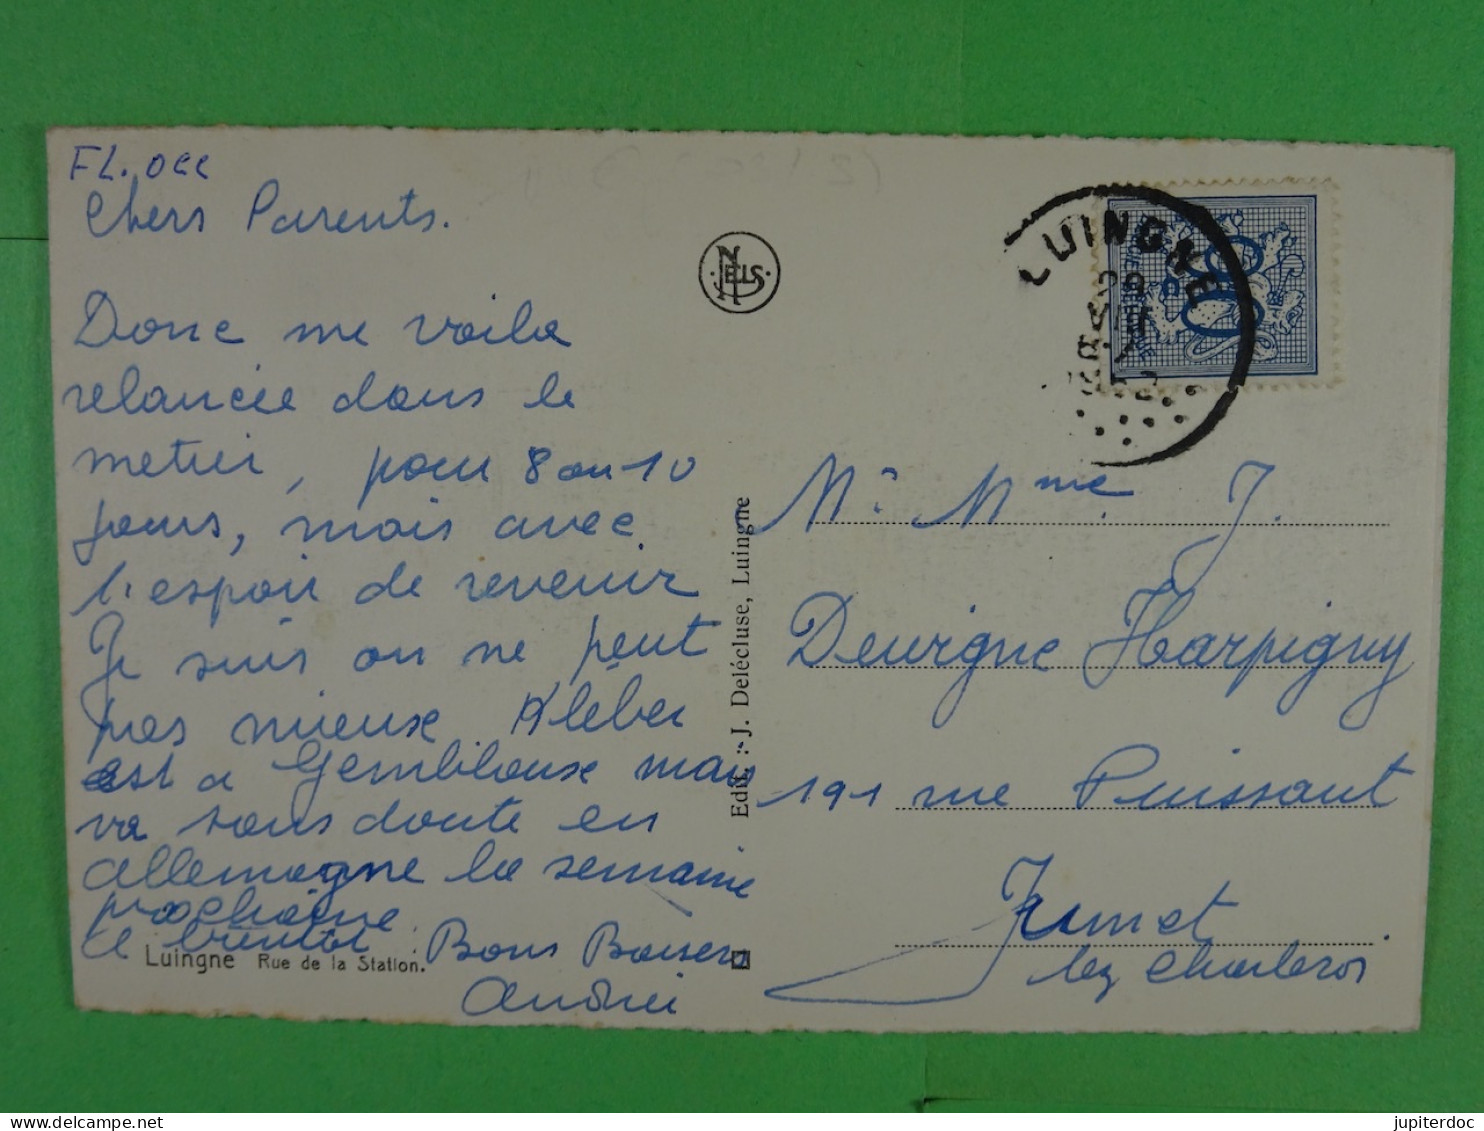 FL. occ
Chers Parents.
Donc me voila
relancée dans le
metier, pour 8 ou 10
jours, mais avec
l'espoir de revenir
Je suis on ne peut
pas mieux. Kleber
est a Gembloux mais
va sans doute en
allemagne la semaine
prochaine
a bientot. Bons Baisers
Luingne Rue de la Station.
NELS
Edit. : J. Delécluse, Luingne
LUINGNE
Mr Mme J.
Deuvigne Harpigny
191 rue Puissant
Jumet
lez Charleroi
jupiterdoc